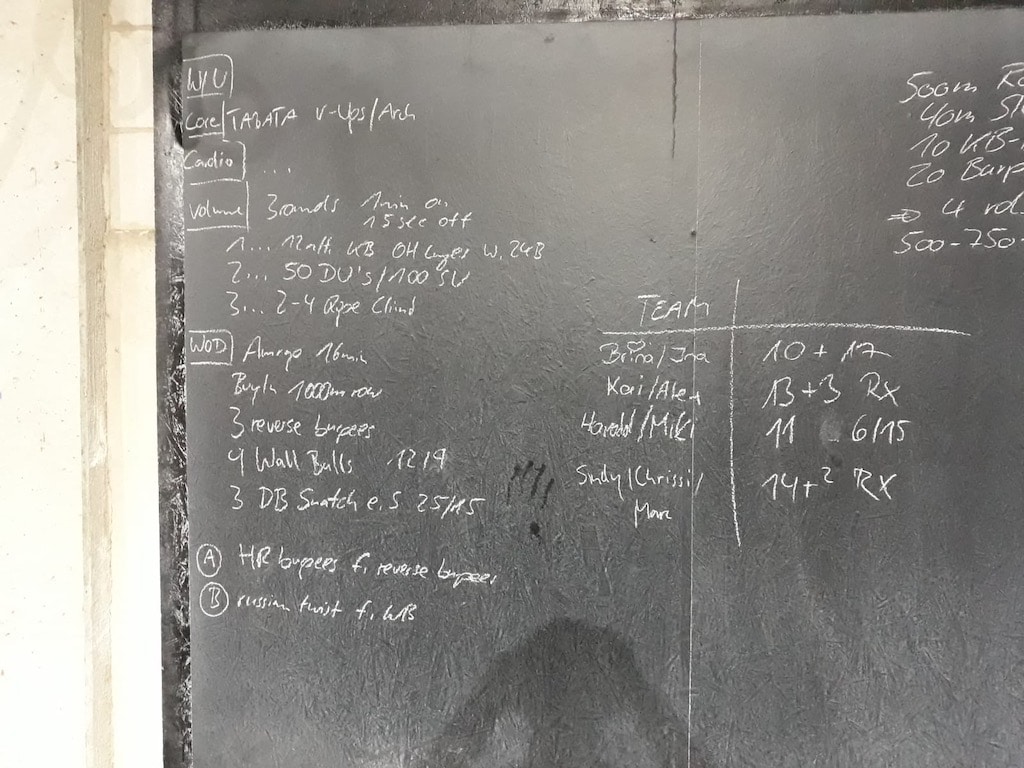 W/U
Core TABATA V-Ups/Arch
Cardio ...
Volume 3 rounds 1min on
15 sec off
1... 12 alt. KB OH Lunges W. 24B
2... 50 DU's/100 SU
3... 2-4 Rope Climb
WOD Amrap 16min
BuyIn 1000m row
3 reverse burpees
9 Wall Balls 12/9
3 DB Snatch e.S. 25/15
A HR burpees f. reverse burpees
B russian twist f. WB
TEAM
Brina/Ina 10 + 17
Kari/Alex 13 + 3 Rx
Harald/Miki 11 6/15
Sindy/Chrissi/ 14 + 2 RX
Marc
500m
40m
10 KB-
20 Burp
=> 4 rd.
500-750-